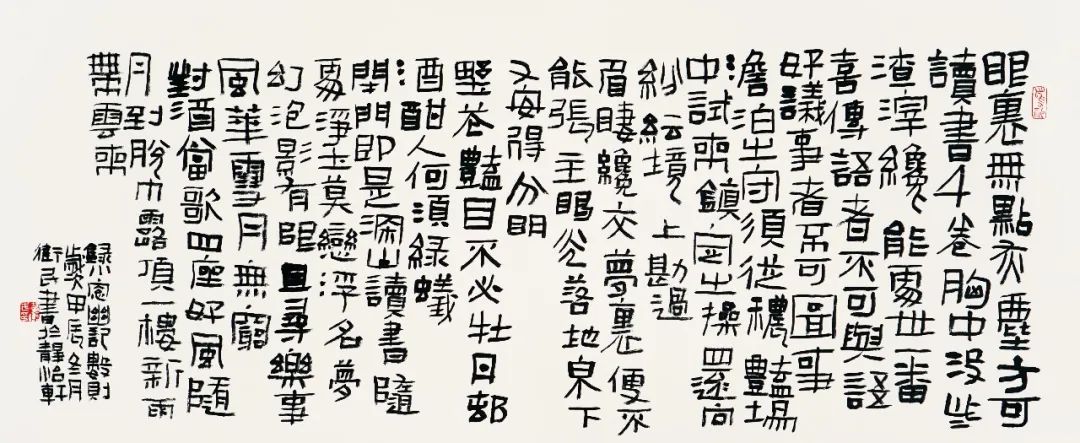 眼裏無點灰塵方可
讀書千卷胸中没些
渣滓纔能處世一番
喜傳語者不可與語
好議事者不可圖事
澹泊之守須從穠豔場
中試來鎮定之操還向
紛紜境上勘過
眉睫纔交夢裏便不
能張主眼光落地泉下
又安得分明
野花豔目不必牡丹邨
酒酣人何須緑蟻
閉門即是深山讀書隨
處淨土莫戀浮名夢
幻泡影有限且尋樂事
風華雪月無窮
對酒當歌四座好風隨
月到脱巾露頂一樓新雨
帶雲來
録小窗幽記數則
歲次甲辰冬月
衛民書於静怡軒